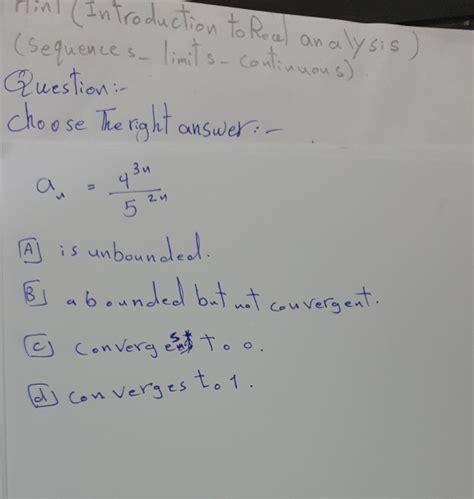 (Introduction to Real analysis)
(sequences_ limits_ continuous)
Question:-
choose The right answer:-
aₙ = 4³ⁿ / 5²ⁿ
A is unbounded.
B a bounded but not convergent.
C converges to 0.
d converges to 1.